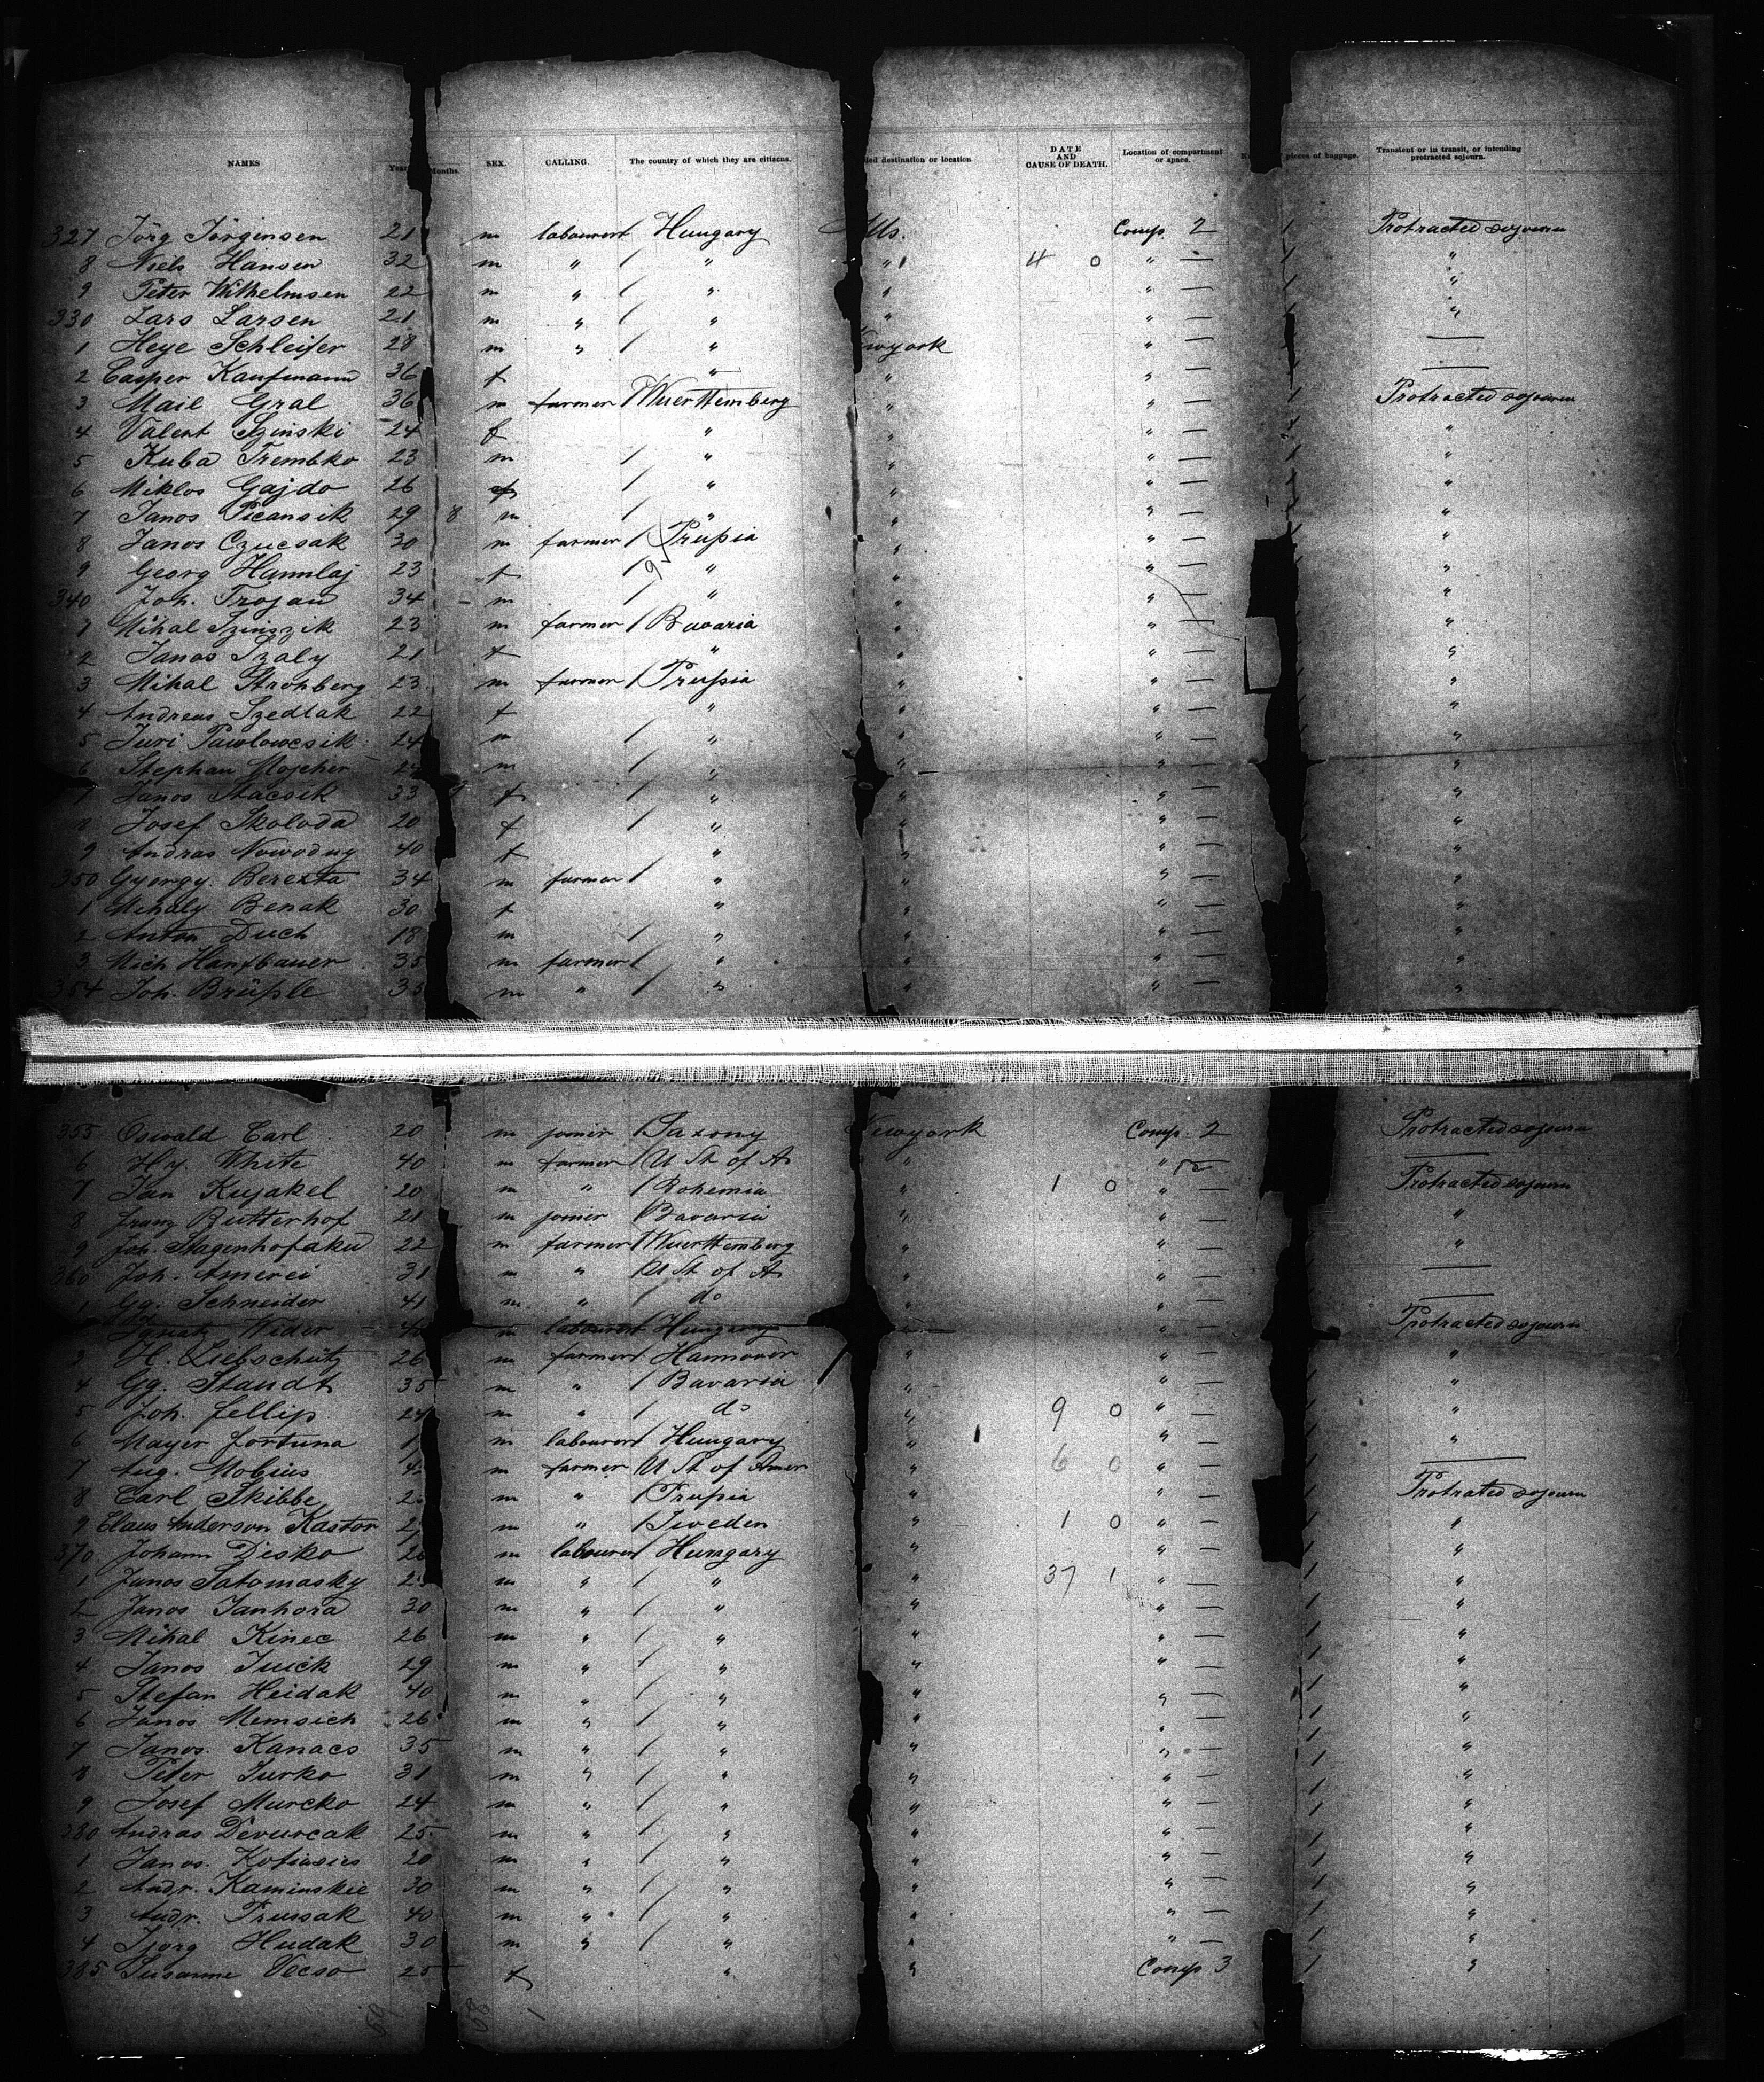 NAMES Years Months. SEX. CALLING. The country of which they are citizens. destination or location DATE AND CAUSE OF DEATH. Location of compartment or space. pieces of baggage. Transient or in transit, or intending protracted sojourn.
327 Jörg Jörginsen 21 m labourer / Hungary Ills. Comp. 2 1 Protracted sojourn
8 Niels Hansen 32 m " / " " 4 0 " — "
9 Peter Wilhelmsen 22 m " / " " " — "
330 Lars Larsen 21 m " / " " " — "
1 Heye Schleifer 28 m " / " wyork " — —
2 Casper Kaufmann 36 f " " " — —
3 Mail Gral 36 m farmer / Wuerttemberg " " — Protracted sojourn
4 Valent 24 f " " " — "
5 Kuba Trembko 23 m / " " " — "
6 Miklos Gajdo 26 f / " " " — "
7 Janos Picansik 29 8 m / " " " — "
8 Janos Czucsak 30 m farmer / Prußia " " — "
9 Georg Hamnlaj 23 f / " " " — "
340 Joh. Trojan 34 - m / " " " — "
1 Mihal 23 m farmer / Bavaria " " — "
2 Janos Szaly 21 f " " " — "
3 Mihal Strohberg 23 m farmer / Prußia " " — "
4 Andreas Szedlak 22 f " " " — "
5 Juri Pawlowcsik 24 m / " " " — "
6 Stephan m / " " " — "
7 Janos Stacsik 33 f / " " " — "
8 Josef Skoloda 20 f / " " " — "
9 Andras Nowodny 40 f " " " — "
350 Gyorgy Berexta 34 m farmer / " " " — "
1 Mihaly Benak 30 f " " " — "
2 Anton Duch 18 m / " " " — "
3 Mich Hanfbauer 35 m farmer / " " " — "
354 Joh. Brüßle 35 m " / " " " — "
355 Oswald Carl 20 m joiner / Saxony Newyork Comp. 2 Protracted sojourn
6 Hy. White 40 m farmer / U St of A " " — —
7 Jan Kujakel 20 m " / Bohemia " 1 0 " — Protracted sojourn
8 Franz Butterhof 21 m joiner Bavaria " " — "
9 Joh. 22 m farmer / Wuerttemberg " " — "
360 Joh. Amerei 31 m " / U St of A " " — —
1 Gg. Schneider 41 m " / do " " — —
2 Ignatz Wider 40 m labourer / Hungary " " — Protracted sojourn
3 H. Liebschütz 26 m farmer / Hannover " " — "
4 Gg. Staudt 35 m " / Bavaria " " — "
5 Joh. Fellip 24 m " / do " 9 0 " — "
6 Mayer Fortuna m labourer / Hungary " " — "
7 Aug. Mobius m farmer / U St of Amer " 6 0 " — —
8 Carl Skibbe m " / Prußia " " — Protrated sojourn
9 Claus Anderson Kastor m " / Sweden " 1 0 " — "
370 Johann Disko m labourer / Hungary " " — "
1 Janos Satomasky m " / " " 37 1 " — "
2 Janos Janhora 30 m " / " " " — 1 "
3 Mihal Kinec 26 m " / " " " — 1 "
4 Janos Juick 29 m " / " " " — 1 "
5 Stefan Heidak 40 m " / " " " — 1 "
6 Janos Memsich 26 m " / " " " — 1 "
7 Janos. Kanacs 35 m " / " " " — 1 "
8 Peter Jurko 31 m " / " " " — 1 "
9 Josef Murcko 24 m " / " " " — 1 "
380 Andras Devurcak 25 m " / " " " — 1 "
1 Janos. 20 m " / " " " — 1 "
2 Andr. Kaminskie 30 m " / " " " — 1 "
3 Andr. Prussak 40 m " / " " " — 1 "
4 Hudak 30 m " / " " " — 1 "
385 Susanne Vecso 25 f " " Comp 3 1 "